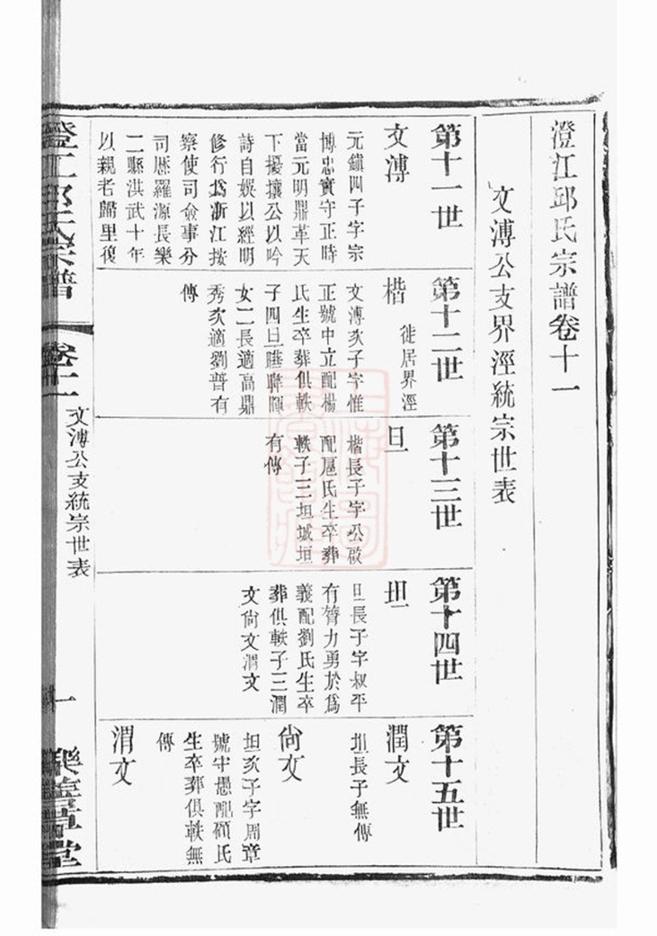 澄江邱氏宗譜卷十一
文溥公支界涇統宗世表
第十一世
文溥
元鎮四子字宗
博忠實守正時
當元明鼎革天
下擾攘公以吟
詩自娛以經明
修行爲浙江按
察使司僉事分
司歷羅源長樂
二縣洪武十年
以親老歸里復
第十二世
楷
徙居界涇
文溥次子字惟
正號中立配楊
氏生卒葬俱軼
子四旦
女二長適高鼎
秀次適劉普有
傳
第十三世
旦
楷長子字公啟
配扈氏生卒葬
軼子三坦城垣
有傳
第十四世
坦
旦長子字叔平
有膂力勇於爲
義配劉氏生卒
葬俱軼子三潤
文尙文渭文
第十五世
潤文
坦長子無傳
尙文
坦次子字周章
號守愚配顧氏
生卒葬俱軼無
傳
渭文
澄江邱氏宗譜
卷十一
文溥公支統宗世表
一
樂善堂